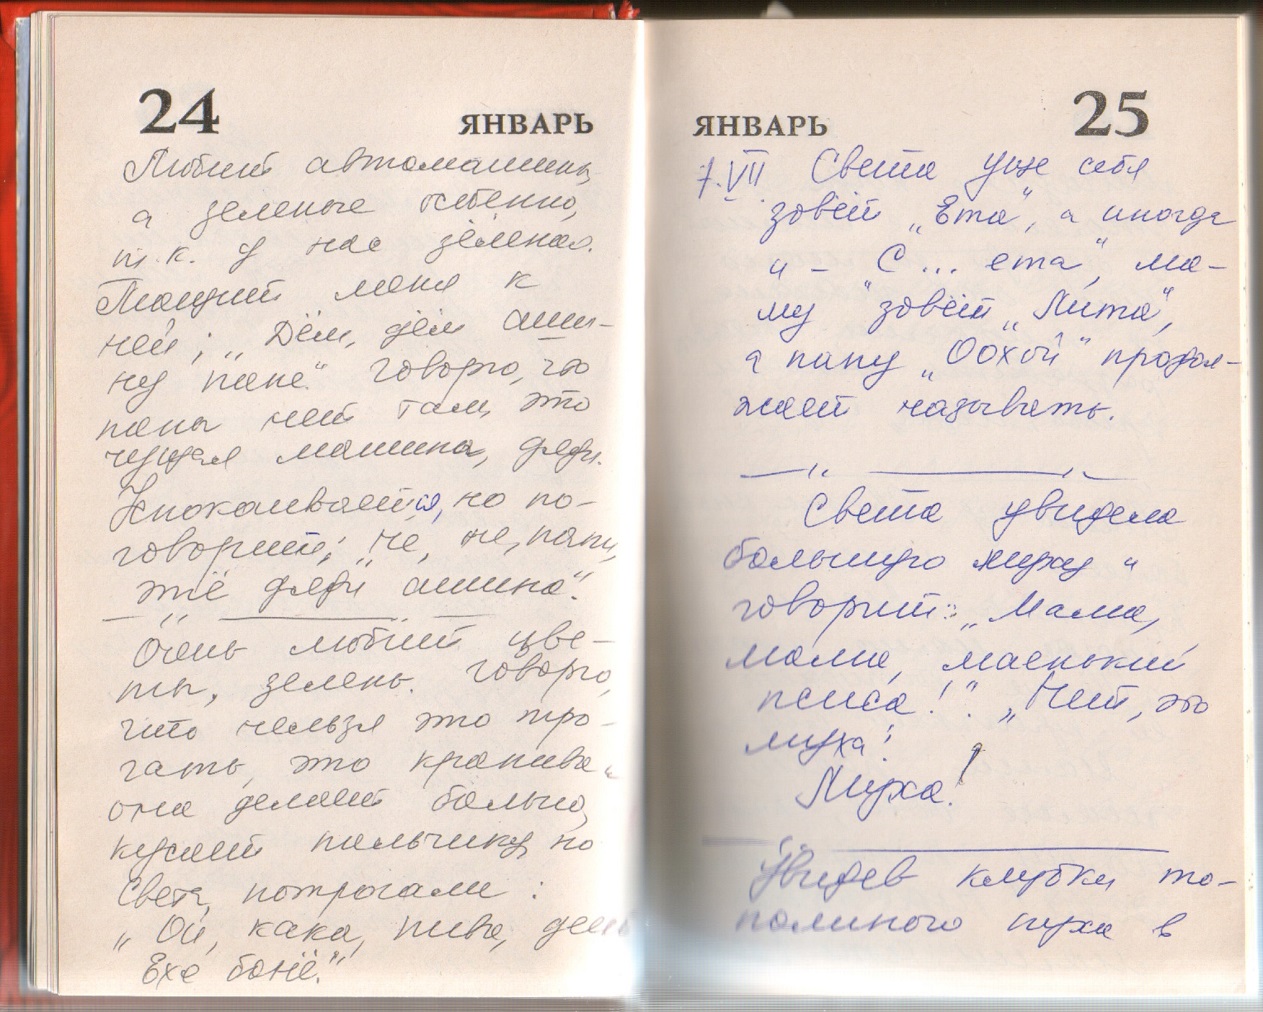 24 ЯНВАРЬ
Любит автомашины,
а зеленые особенно,
т.к. у нас зелёная.
Тащит меня к
ней; „Дём, дём аши-
ну папе." говорю, что
папы нет там, это
чужая машина, дяди.
Успокаивается, но по-
говорит; „Не, не, папы,
этё дяди ашина".
Очень любит цве-
ты, зелень. говорю,
что нельзя это тро-
гать, это крапива
она делает больно,
кусает пальчики, но
Света, потрогали :
„Ой, кака, пива, деит
Ехе бонё."
ЯНВАРЬ 25
7.VII Света уже себя
зовёт „Ета", а иногда
и – С... ета", ма-
му зовёт „Лита",
а папу „Оохой" продол-
жает называть.
Света увидела
большую муху и
говорит: „Мама,
мама, маенький
писа!". „Нет, это
муха!
Муха!
Увидев клубки то-
полиного пуха в